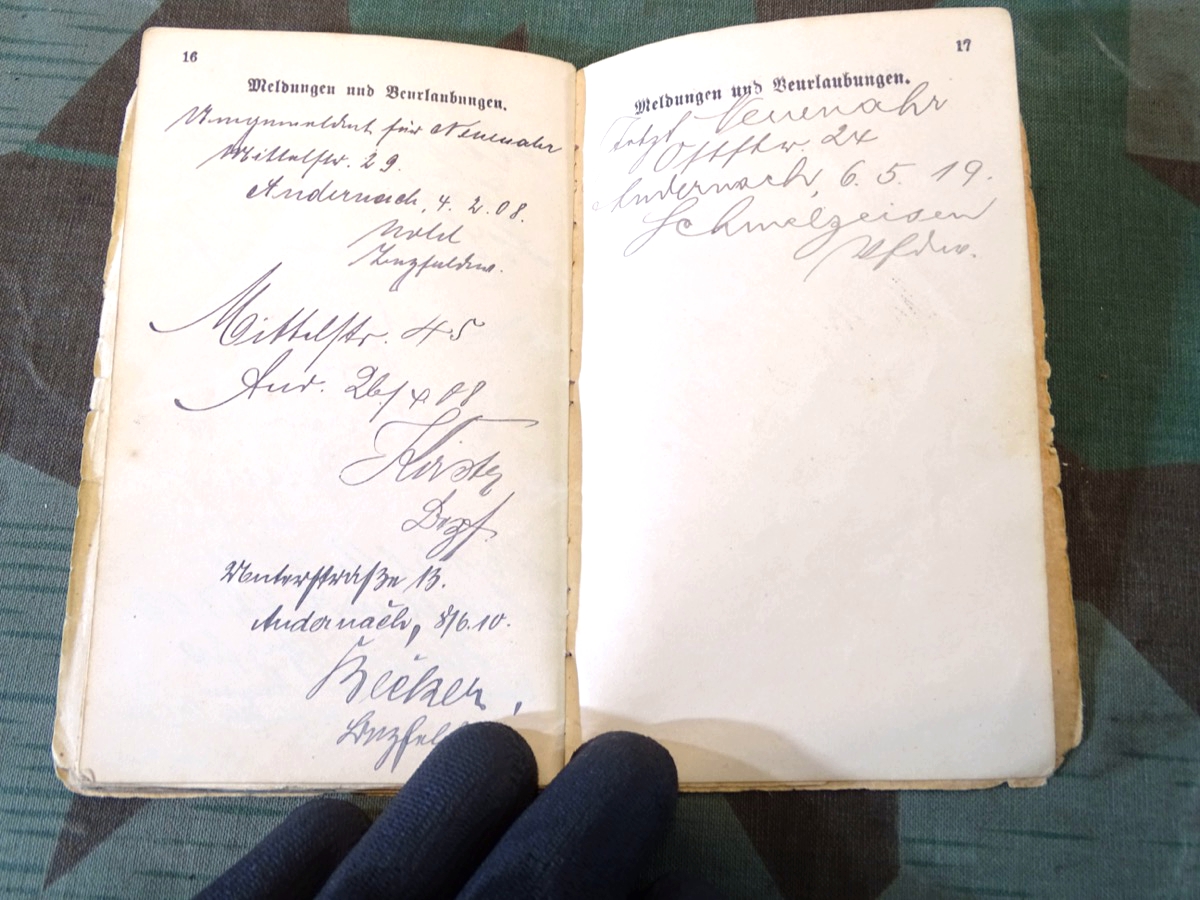 16
Meldungen und Beurlaubungen.
Umgemeldet für Neuenahr
Mittelstr. 29.
Andernach, 4. 2. 08.
Mittelstr. 45
And.
Unterstraße 13.
Andernach, 8/6.10.
Becker,
17
Meldungen und Beurlaubungen.
Jetzt Neuenahr
Oststr. 24
Andernach, 6. 5. 19.
Schmelzeisen